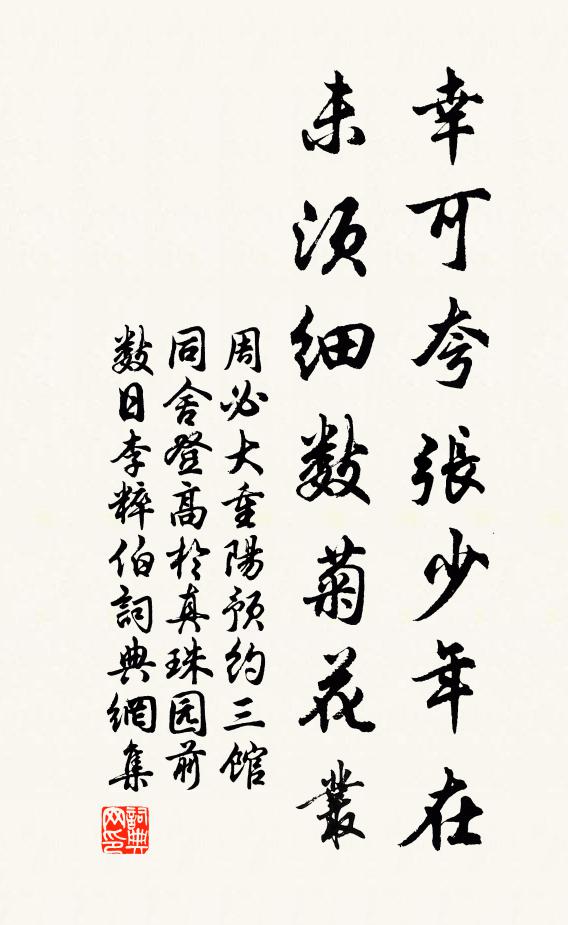 幸可夸張少年在
未須细数菊花叢
周必大重陽预约三馆
同舍登高於真珠园前
数日李粹伯詞典網集
詞典
网印